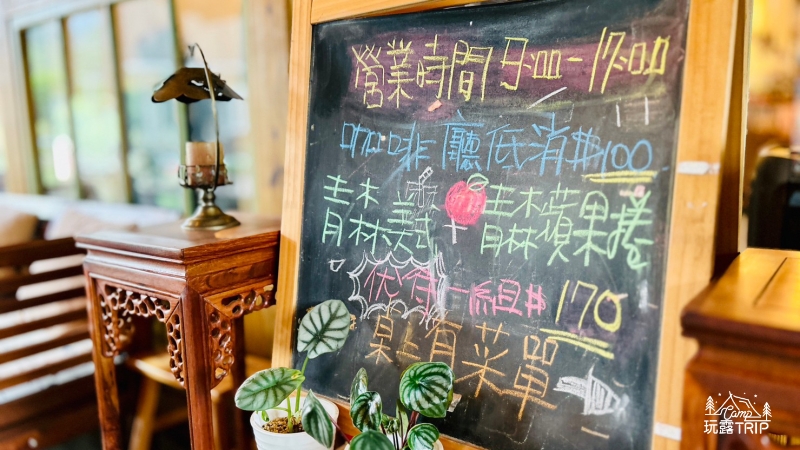 營業時間 9:00-17:00
咖啡廳低消$100
青林美式 + 青林蘋果捲
優待一組$170
桌上有菜單
Camp
玩露TRIP